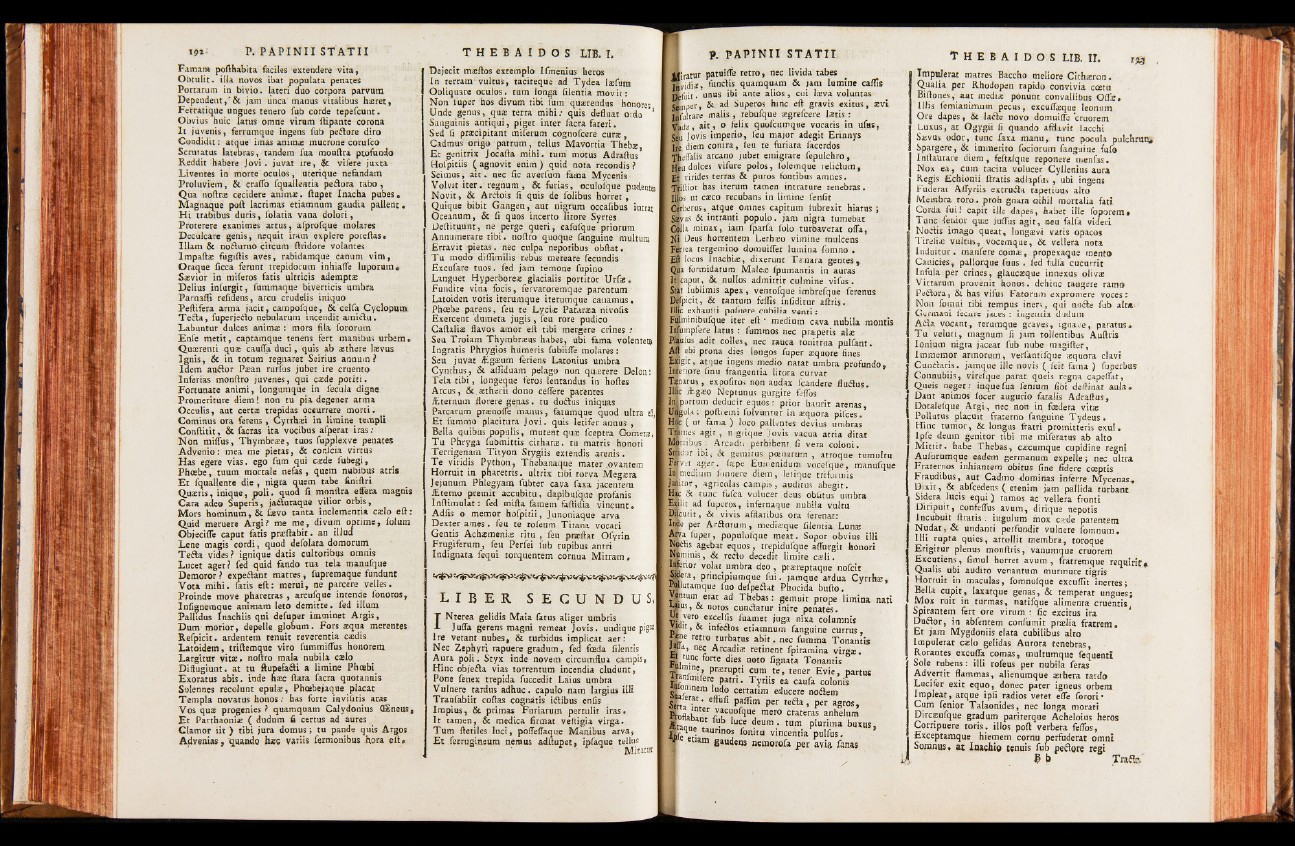 192 P. PAPINII STATII
Famam posthabita faciles extendere vita,
Obtulit. illa novos ibat populata penates
Portarum in bivio. lateri duo corpora parvum
Dependent, & jam unca manus vitalibus hæret,
Ferratique ungues tenero sub corde tepescunt.
Obvius huic latus omne virum stipante corona
It juvenis, ferrumque ingens sub pectore diro
Condidit: atque imas animæ mucrone corusco
Scrutatus latebras, tandem sua monstra profundo
Reddit habere Jovi. juvat ire, & visere juxta
Liventes in morte oculos, uterique nefandam
Proluviem, & crasso squallentia pectora tabo,
Qua nostræ cecidere animæ. stupet Inacha pubes.
Magnaque post lacrimas etiamnum gaudia pallent.
Hi trabibus duris, solatia vana dolori,
Proterere exanimes artus, asprosque molares
Deculcare genis, nequit iram explere potestas.
Illam & nocturno circum stridore volantes
Impastæ fugistis aves, rabidamque canum vim,
Oraque sicca ferunt trepidorum inhiasse luporum.
Sævior in miseros fatis ultricis ademptæ
Delius insurgit, summaque biverticis umbra
Parnassi residens, arcu crudelis iniquo
Pestifera arma jacit, camposque, & celsa Cyclopum
Tecta, superjecto nebularum incendit amictu.
Labuntur dulces animæ: mors fila sororum
Ense metit, captamque tenens fert manibus urbem.
Quærenti quæ caussa duci, quis ab æthere lævus
Ignis, & in totum regnaret Seirius annum?
Idem auctor Pæan rursus jubet ire cruento
Inferias monstro juvenes, qui cæde potiti.
Fortunate animi, longumque in secula digne
Promeriture diem! non tu pia degener arma
Occulis, aut certæ trepidas occurrere morti.
Cominus ora ferens, Cyrrhæi in limine templi
Constitit, & sacras ita vocibus asperat iras:
Non missus, Thymbræe, tuos supplexve penates
Advenio: mea me pietas, & conscia virtus
Has egere vias. ego sum qui cæde subegi,
Phœbe, tuum mortale nefas, quem nubibus atris
Et squallente die, nigra quem tabe sinistri
Quæris, inique, poli. quod si monstra effera magnis
Cara adeo Superis, jacturaque vilior orbis,
Mors hominum, & sævo tanta inclementia cælo est:
Quid meruere Argi? me me, divum optime, solum
Objecisse caput fatis præstabit. an illud
Lene magis cordi, quod desolata domorum
Tecta vides? ignique datis cultoribus omnis
Lucet ager? sed quid fando tua tela manusque
Demoror? expectant matres, supremaque fundunt
Vota mihi. satis est: merui, ne parcere velles.
Proinde move pharetras, arcusque intende sonoros,
Insignemque animam leto demitte. sed illum
Pallidus Inachiis qui desuper imminet Argis,
Dum morior, depelle globum. Fors æqua merentes
Respicit. ardentem tenuit reverentia cædis
Latoidem, tristemque viro summissus honorem
Largitur vitæ. nostro mala nubila cælo
Diffugiunt. at tu stupefacti a limine Phœbi
Exoratus abis. inde hæc stata sacra quotannis
Solennes recolunt epulæ, Phœbejaque placat
Templa novatus honos: has forte invisitis aras
Vos quæ progenies? quamquam Calydonius Œneus,
Et Parthaoniæ ( dudum si certus ad aures
Clamor iit ) tibi jura domus; tu pande quis Argos
Advenias, quando hæc variis sermonibus hora est.
THEBAIDOS LIB. I.
Dejecit mæstos extemplo Ismenius heros
In terram vultus, taciteque ad Tydea læsum
Obliquare oculos. tum longa silentia movit:
Non super hos divum tibi sum quærendus honores,
Unde genus, quæ terra mihi: quis defluat ordo
Sanguinis antiqui, piget inter sacra fateri.
Sed si præcipitant miserum cognoscere curæ,
Cadmus origo patrum, tellus Mavortia Thebæ,
Et genitrix Jocasta mihi. tum motus Adrastus
Hospitiis ( agnovit enim ) quid nota recondis?
Scimus, ait. nec sic aversum fama Mycenis
Volvit iter. regnum, & furias, oculosque pudentes
Novit, & Arctois si quis de solibus horret,
Quique bibit Gangen, aut nigrum occasibus intrat
Oceanum, & si quos incerto litore Syrtes
Destituunt, ne perge queri, casusque priorum
Annumerare tibi. nostro quoque sanguine multum
Erravit pietas. nec culpa nepotibus obstat.
Tu modo dissimilis rebus mereare secundis
Excusare tuos. sed jam temone supino
Languet Hyperboreæ glacialis portitor Ursæ.
Fundite vina focis, servatoremque parentum
Latoiden votis iterumque iterumque canamus.
Phœbe parens, seu te Lyciæ Pataræa nivosis
Exercent dumeta jugis, seu rore pudico
Castaliæ flavos amor est tibi mergere crines:
Seu Troiam Thymbræus habes, ubi fama volentem
Ingratis Phrygios humeris subiisse molares:
Seu juvat Ægæum feriens Latonius umbra
Cynthus, & assiduam pelago non quærere Delon:
Tela tibi, longeque feros lentandus in hostes
Arcus, & ætherii dono cessere parentes
Æternum florere genas. tu doctus iniquas
Parcarum prænosse manus, fatumque quod ultra est,
Et summo placitura Jovi. quis letifer annus,
Bella quibus populis, mutent quæ sceptra Cometæ.
Tu Phryga submittis citharæ. tu matris honori
Terrigenam Tityon Stygiis extendis arenis.
Te viridis Python, Thebanaque mater ovantem
Horruit in pharetris. ultrix tibi torva Megæra
Jejunum Phlegyam subter cava saxa jacentem
Æterno premit accubitu, dapibusque profanis
Instimulat: sed mista famem fastidia vincunt.
Adsis o memor hospitii, Junoniaque arva
Dexter ames. seu te roseum Titana vocari
Gentis Achæmeniæ ritu, seu præstat Osyrin
Frugiferum, seu Persei sub rupibus antri
Indignata sequi torquentem cornua Mitram.
LIBER SECUNDUS.
INterea gelidis Maia satus aliger umbris
Jussa gerens magni remeat Jovis. undique pigræ
Ire vetant nubes, & turbidus implicat aer:
Nec Zephyri rapuere gradum, sed fœda silentis
Aura poli. Styx inde novem circumflua campis,
Hinc objecta vias torrentum incendia cludunt,
Pone senex trepida succedit Laius umbra
Vulnere tardus adhuc. capulo nam largius illi
Transabiit costas cognatis ictibus ensis
Impius, & primas Furiarum pertulit iras.
It tamen, & medica firmat vestigia virga.
Tum steriles luci, possessaque Manibus arva,
Et ferrugineum nemus adstupet, ipsaque tellus
Miratur
P. PAPINII STATII
Miratur patuisse retro, nec livida tabes
Invidiæ, functis quamquam & jam lumine cassis
Defuit. unus ibi ante alios, cui læva voluntas
Semper, & ad Superos hinc est gravis exitus, ævi
Insultare malis, rebusque ægrescere lætis:
Vade, ait, o felix quoscumque vocaris in usus,
Seu Jovis imperio, seu major adegit Erinnys
Ire diem contra, seu te furiata sacerdos
Thessalis arcano jubet emigrare sepulchro,
Heu dulces visure polos, solemque relictum,
Et virides terras & puros fontibus amnes.
Tristior has iterum tamen intrature tenebras.
Illos ut cæco recubans in limine sensit
Cerberus, atque omnes capitum subrexit hiatus;
Sævus & intranti populo. jam nigra tumebat
Colla minax, jam sparsa solo turbaverat ossa,
Ni Deus horrentem Lethæo vimine mulcens
Ferrea tergemino domuisset lumina somno.
Est locus Inachiæ, dixerunt Tænara gentes,
Qua formidatum Maleæ spumantis in auras
It caput, & nullos admittit culmine visus.
Stat sublimis apex, ventosque imbresque serenus
Despicit, & tantum fessis insiditur astris.
Illic exhausti posuere cubilia venti:
Fulminibusque iter est: medium cava nubila montis
Insumpsere latus: summos nec præpetis alæ
Plausus adit colles, nec rauca tonitrua pulsant.
Ast ubi prona dies longos super æquore fines
Exigit, atque ingens medio natat umbra profundo,
Interiore sinu frangentia litora curvat
Tænarus, expositos non audax scandere fluctus.
Illic Ægæo Neptunus gurgite fessos
In portum deducit equos: prior haurit arenas,
Ungula: postremi solvuntur in æquora pisces.
Hoc ( ut fama ) loco pallentes devius umbras
Trames agit, nigrique Jovis vacua atria ditat
Mortibus. Arcadii perhibent si vera coloni.
Stridor ibi, & gemitus pœnarum, atroque tumultu
Fervit ager. sæpe Eumenidum vocesque, manusque
In medium sonuere diem, letique triformis
Janitor, agricolas campis, auditus abegit.
Hac & tunc fusca volucer deus obsitus umbra
Exilit ad superos, infernaque nubila vultu
Discutit, & vivis afflatibus ora serenat:
Inde per Arcturum, mediæque silentia Lunæ
Arva super, populosque meat. Sopor obvius illi
Noctis agebat equos, trepidusque assurgit honori
Numinis, & recto decedit limite cæli.
Inferior volat umbra deo, præreptaque noscit
Sidera, principiumque sui. jamque ardua Cyrrhæ,
Pollutamque suo despectat Phocida busto.
Ventum erat ad Thebas: gemuit prope limina nati
Laius, & notos cunctatur inire penates.
Ut vero excelsis suamet juga nixa columnis
Vidit, & infectos etiamnum sanguine currus,
Pene retro turbatus abit. nec summa Tonantis
Jussa, nec Arcadiæ retinent spiramina virgæ.
Et tunc forte dies noto signata Tonantis
Fulmine, prærupti cum te, tener Evie, partus
Transmisere patri. Tyriis ea causa colonis
Insomnem ludo certatim educere noctem
Suaserat. effusi passim per tecta, per agros,
Serta inter vacuosque mero crateras anhelum
Proflabant sub luce deum. tum plurima buxus,
Æraque taurinos sonitu vincentia pulsus.
Ipse etiam gaudens nemorosa per avia sanas
THEBAIDOS LIB. II. 193
Impulerat matres Baccho meliore Cithæron.
Qualia per Rhodopen rapido convivia cœtu
Bistones, aut mediæ ponunt convallibus Ossæ.
Illis semianimum pecus, excussæque leonum
Ore dapes, & lacte novo domuisse cruorem
Luxus, at Ogygii si quando afflavit Iacchi
Sævus odor, tunc saxa manu, tunc pocula pulchrum
Spargere, & immerito sociorum sanguine fuso
Instaurare diem, festasque reponere mensas.
Nox ea, cum tacita volucer Cyllenius aura
Regis Echionii stratis adlapsus, ubi ingens
Fuderat Assyriis extructa tapetibus alto
Membra toro. proh gnara nihil mortalia fati
Corda sui! capit ille dapes, habet ille soporem.
Tunc senior quæ jussus agit, neu falsa videri
Noctis imago queat, longævi vatis opacos
Tiresiæ vultus, vocemque, & vellera nota
Induitur. mansere comæ, propexaque mento
Canicies, pallorque suus. sed falsa cucurrit
Infula per crines, glaucæque innexus olivæ
Vittarum provenit honos. dehinc tangere ramo
Pectora, & has visus Fatorum expromere voces:
Non somni tibi tempus iners, qui nocte sub alta
Germani secure jaces: ingentia dudum
Acta vocant, rerumque graves, ignave, paratus.
Tu veluti, magnum si jam tollentibus Austris
Ionium nigra jaceat sub nube magister,
Immemor armorum, versantisque æquora clavi
Cunctaris. jamque ille novis ( scit fama ) superbus
Connubiis, viresque parat queis regna capessat,
Queis neget: inque tua senium sibi destinat aula.
Dant animos socer augurio fatalis Adrastus,
Dotalesque Argi, nec non in fœdera vitæ
Pollutus placuit fraterno sanguine Tydeus.
Hinc tumor, & longus fratri promitteris exul.
Ipse deum genitor tibi me miseratus ab alto
Mittit. habe Thebas, cæcumque cupidine regni
Ausurumque eadem germanum expelle; nec ultra
Fraternos inhiantem obitus sine fidere cœptis
Fraudibus, aut Cadmo dominas inferre Mycenas.
Dixit, & abscedens ( etenim jam pallida turbant
Sidera lucis equi ) ramos ac vellera fronti
Diripuit, confessus avum, dirique nepotis
Incubuit stratis. jugulum mox cæde patentem
Nudat, & undanti perfundit vulnere somnum.
Illi rupta quies, attollit membra, toroque
Erigitur plenus monstris, vanumque cruorem
Excutiens, simul horret avum, fratremque requirit.
Qualis ubi audito venantum murmure tigris
Horruit in maculas, somnosque excussit inertes;
Bella cupit, laxatque genas, & temperat ungues;
Mox ruit in turmas, natisque alimenta cruentis
Spirantem fert ore virum: sic excitus ira
Ductor, in absentem consumit prælia fratrem.
Et jam Mygdoniis elata cubilibus alto
Impulerat cælo gelidas Aurora tenebras,
Rorantes excussa comas, multumque sequenti
Sole rubens: illi roseus per nubila seras
Advertit flammas, alienumque æthera tardo
Lucifer exit equo, donec pater igneus orbem
Impleat, atque ipsi radios vetet esse sorori.
Cum senior Talaonides, nec longa morati
Dircæusque gradum pariterque Acheloius heros
Corripuere toris. illos post verbera fessos,
Exceptamque hiemem cornu perfuderat omni
Somnus. at Inachio tenuis sub pectore regi
B b Tracta